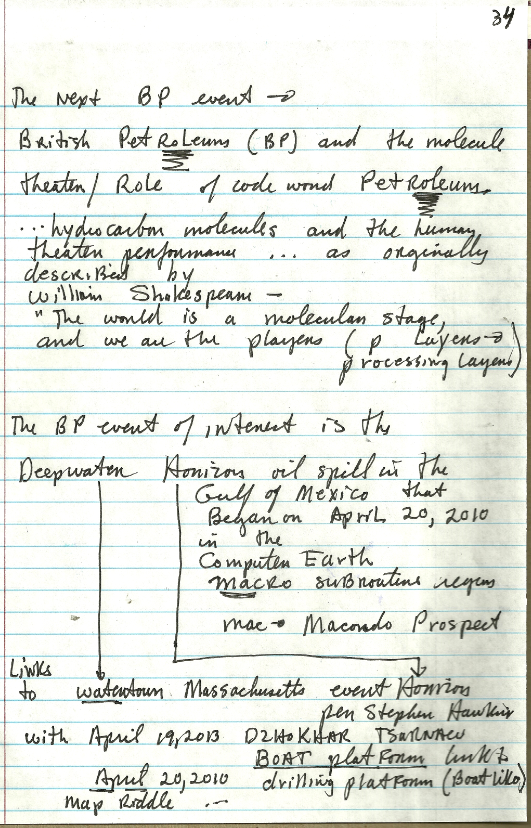 34
The Next BP event →
British PetRoLeums (BP) and the molecule
theater/Role of code word PetRoleums.
...hydrocarbon molecules and the human
theater performance ... as originally
described by
William Shakespeare -
"The world is a molecular stage,
and we are the players (p Layers→
processing Layers)
The BP event of interest is the
Deepwater Horizons oil spill in the
Gulf of Mexico that
Began on April 20, 2010
in the
Computer Earth
macro subroutine region
mac→ Macondo Prospect
Links
to watertown Massachusetts event Horizon
per Stephen Hawkin
with April 19, 2013 DZHOKHAR TSARNAEV
BOAT platForm link to
April 20, 2010 drilling platForm (Boat like)
map Riddle